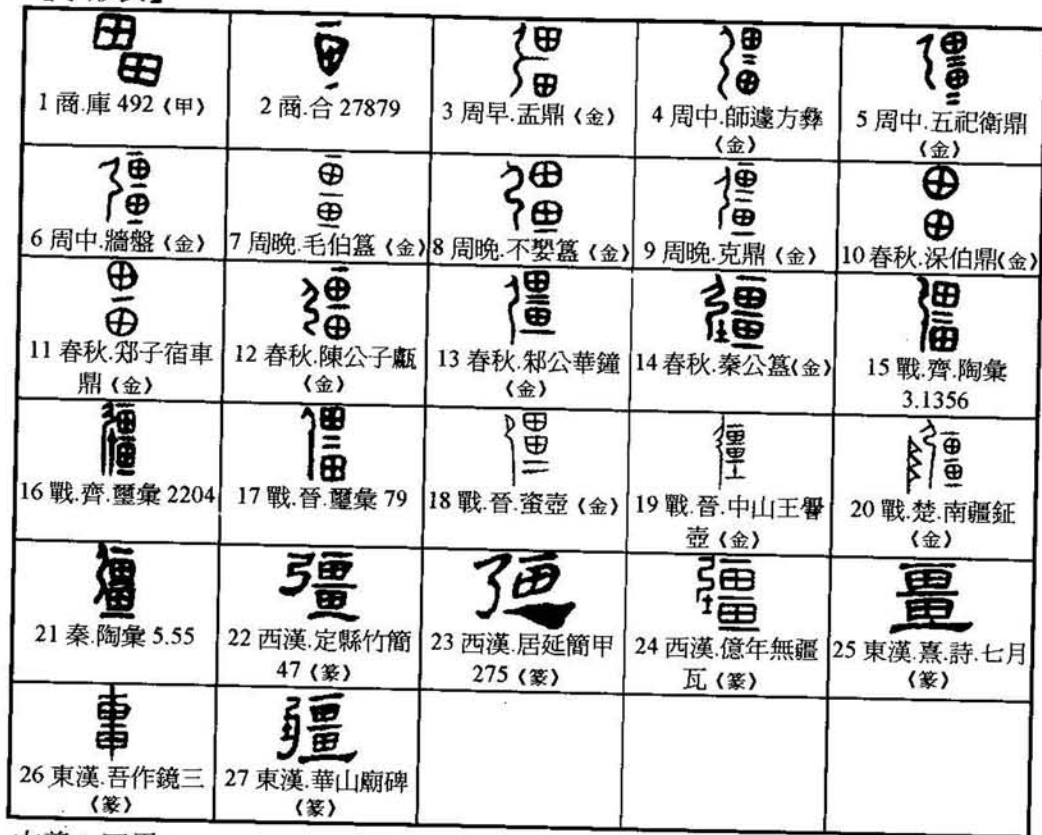 1 商.庫 492〈甲〉
2 商.合 27879
3 周早.盂鼎〈金〉
4 周中.師遽方彝
〈金〉
5 周中.五祀衛鼎
〈金〉
6 周中.牆盤〈金〉
7 周晚.毛伯簋〈金〉
8 周晚.不嬰簋〈金〉
9 周晚.克鼎〈金〉
10 春秋.深伯鼎〈金〉
11 春秋.郑子宿車
鼎〈金〉
12 春秋.陳公子甗
〈金〉
13 春秋.邾公華鐘
〈金〉
14 春秋.秦公簋〈金〉
15 戰.齊.陶彙
3.1356
16 戰.齊.璽彙 2204
17 戰.晉.璽彙 79
18 戰.晉.䖒壺〈金〉
19 戰.晉.中山王譽
壺〈金〉
20 戰.楚.南疆鉦
〈金〉
21 秦.陶彙 5.55
22 西漢.定縣竹簡
47〈篆〉
23 西漢.居延簡甲
275〈篆〉
24 西漢.億年無疆
瓦〈篆〉
25 東漢.熹.詩.七月
〈篆〉
26 東漢.吾作鏡三
〈篆〉
27 東漢.華山廟碑
〈篆〉